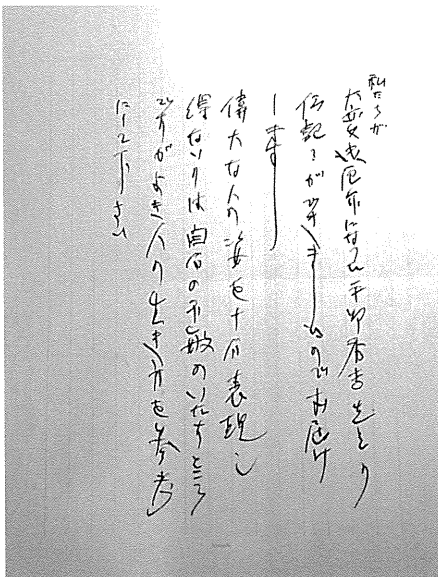 私たちが
大変お世話になった平野 先生の
伝記ができましたのでお届け
します
偉大な人の姿を十分表現し
得ないのは自分の不敏のいたすところ
ですがよき人の生き方を参考
にして下さい